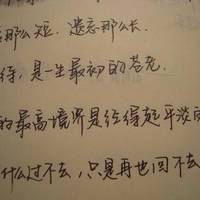 那么短．遗忘那么长．
待，是一生最初的苍老．
的最高境界是经得起平淡的
什么过不去，只是再也回不去